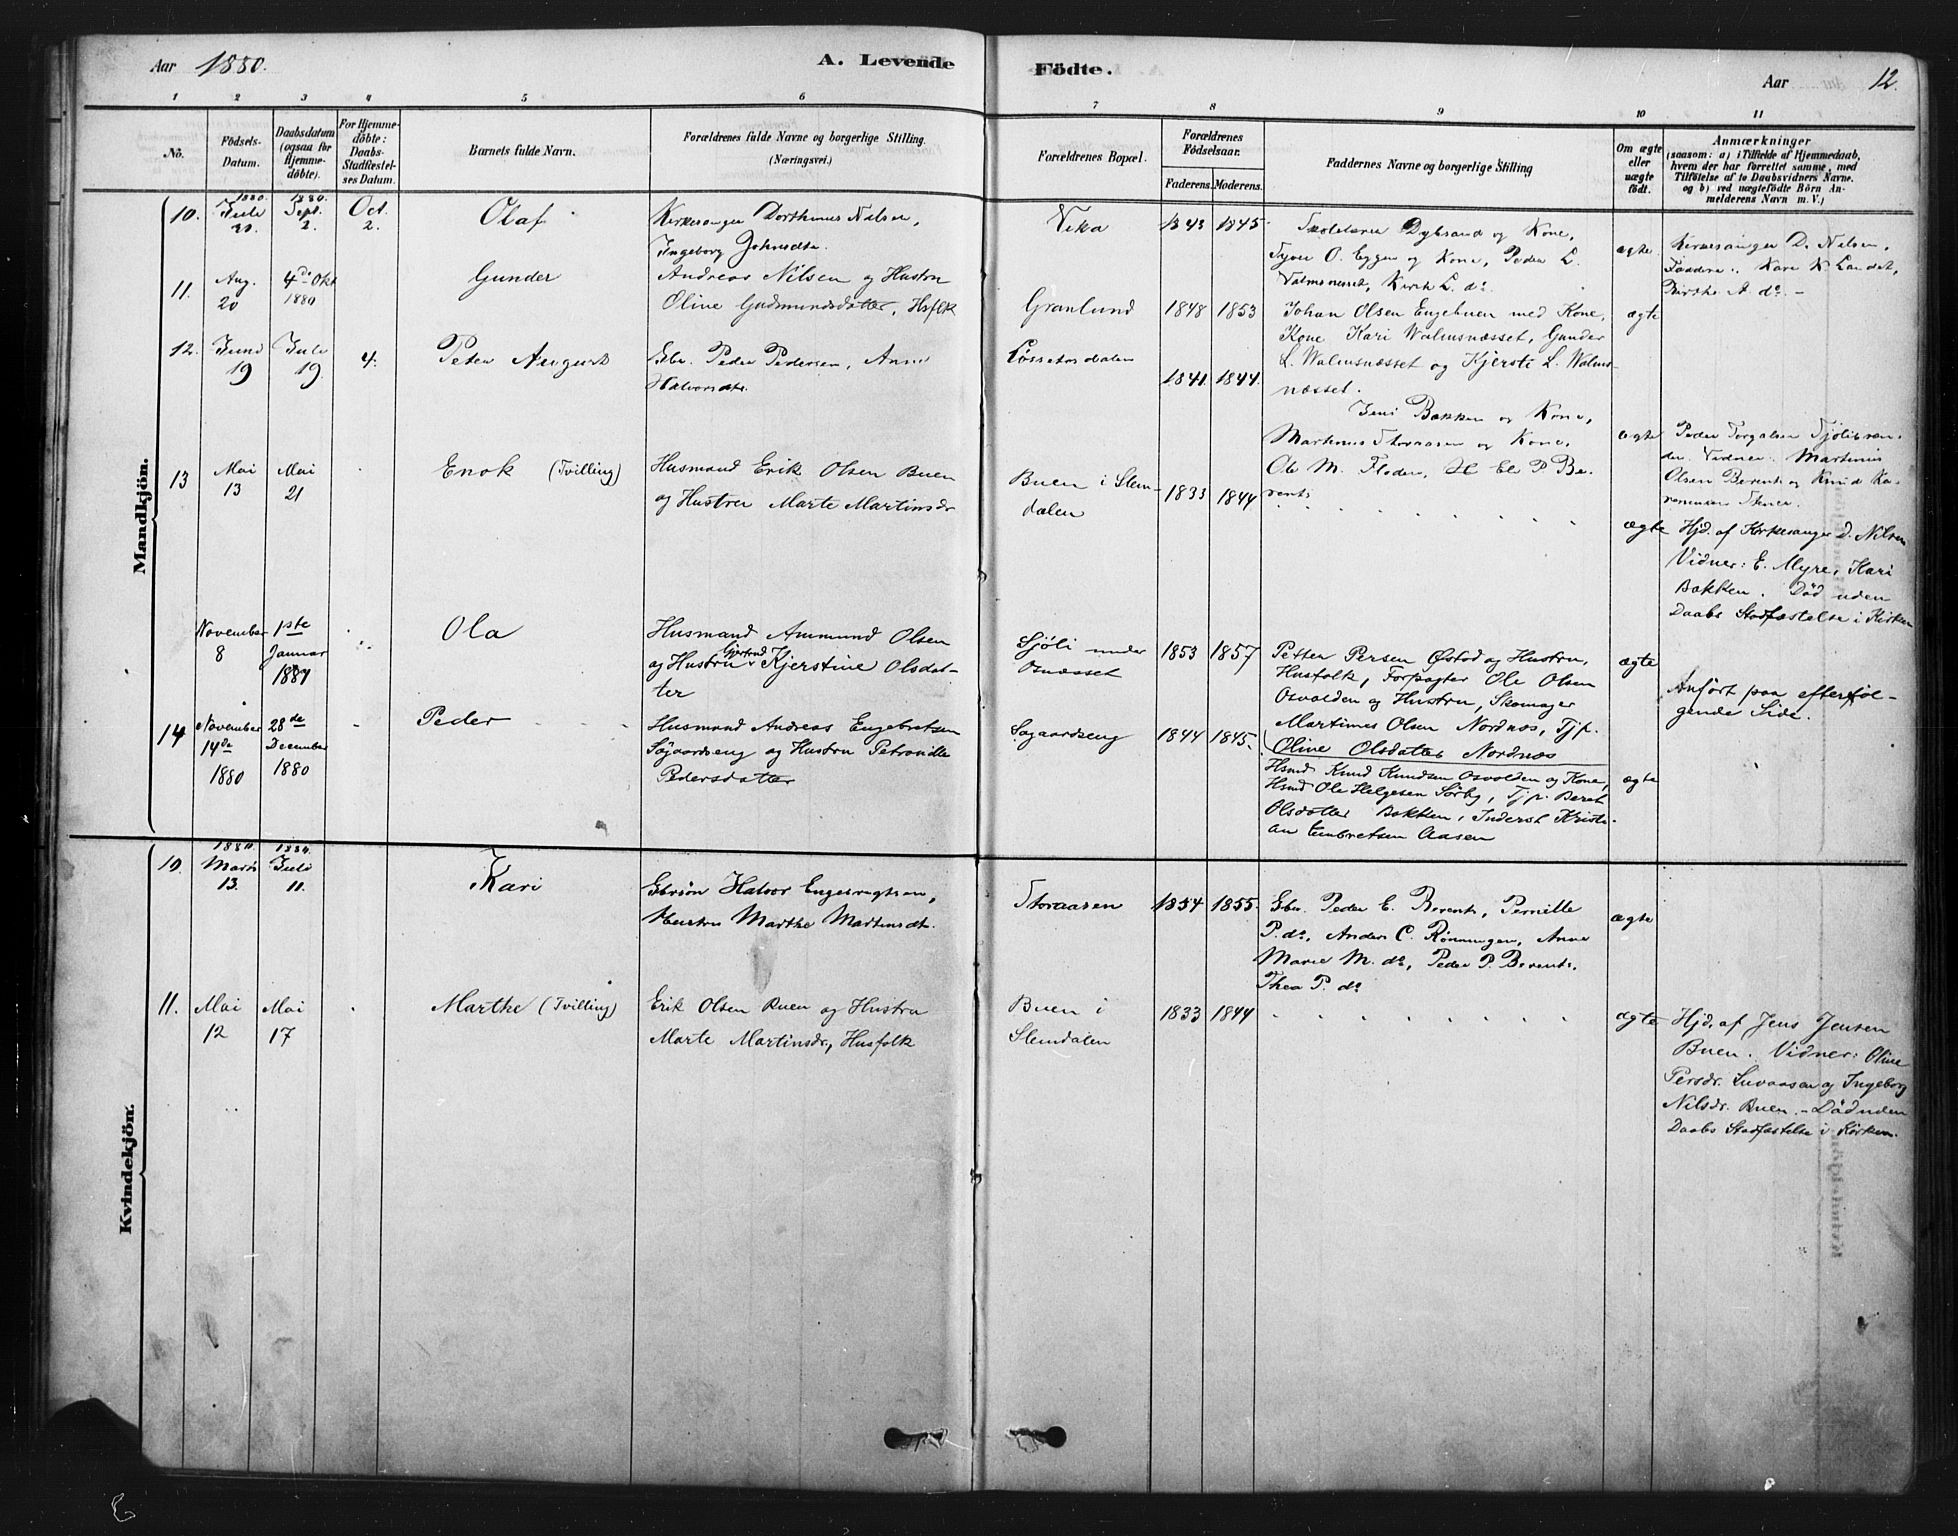 Aar 1880.
A. Levende
Födte.
Aar
12.
1 2 3 4 5 6 7 8 9 10 11
No.
Födsels-
Datum.
Daabsdatum
(ogsaa for
Hjemme-
döbte).
For Hjemme-
döbte:
Daabs-
Stadfæstel-
ses Datum.
Barnets fulde Navn.
Forældrenes fulde Navne og borgerlige Stilling.
(Næringsvei.)
Forældrenes Bopæl.
Forældrenes
Födselsaar.
Faderens. Moderens.
Faddernes Navne og borgerlige Stilling
Om ægte
eller
uægte
födt.
Anmærkninger
(saasom: a) i Tilfælde af Hjemmedaab,
hvem der har forrettet samme, med
Tilföielse af to Daabsvidners Navne.
og b) ved uægtefödte Börn An-
melderens Navn m. V.)
Mandkjön.
10.
1880.
Juli
1880.
Sept.
2.
Oct.
2.
Olaf
Kirkesanger Dorthinus Nilsen,
Ingeborg Johnsdtr.
Vika
1843 1845
Skolelærer Dybsand og Kone,
O. Eggen og Kone, Peder L.
Valmsnesset, L. do.
ægte
Kirkesanger D. Nilsen.
A do. -
11.
Aug.
20
4de Okt
1880
Gunder
Andreas Nilsen og Hustru
Oline Gudmundsdatter, Hsfolk
Granlund
1848 1853
Johan Olsen Engebuen med Kone,
Kone Kari Walmsnæsset, Gunder
L. Walmsnæsset og Kjersti L. Walms-
næsset.
ægte
12.
Juni
19
Juli
19.
4.
Peter August
Gbr. Peder Pedersen, Anne
Halvorsdtr.
Lössetordalen
1841. 1844.
Jens Bakken og Kone,
Martinus Storaasen og Kone,
Ole M. Floden, El. P. Be-
rent.
ægte
Peder Torgalsen
Vidner: Martinus
Olsen Berent og Knud
13
Mai
13
Mai
21
Enok (Tvilling)
Husmand Erik Olsen Buen
og Hustru Marte Martinsdr
Buen i Slem-
dalen
1833 1844
ægte
Hjd. af Kirkesanger D. Nilsen
Vidner: E. Myre, Kari
Bakken. Död uden
Daabs Stadfæstelse i Kirken
November
8
1ste
Januar
1881
Ola
Husmand Ammund Olsen
og Hustru Gjertrud Kjerstine Olsdat-
ter
Sjöli under
Osnæsset
1853 1857
Petter Persen Østod og Hustru,
Husfolk, Forpagter Ole Olsen
Osvolden og Hustru, Skomager
Martinus Olsen Nordnæs, Tjp.
Oline Olsdatter Nordnæs
ægte
Anfört paa efterföl-
gende Side.
14
November
14de
1880
28de
December
1880
Peder
Husmand Andreas Engebretsen
Sagaardseng og Hustru Petronille
Pedersdatter
Sagaardseng
1844 1845.
Hsmd Knud Knudsen Osvolden og Kone,
Hsmd Ole Helgesen Sörby, Tjp. Beret
Olsdatter Bakken, Inderst Kristi-
an Embretsen Aasen
ægte
Kvindekjön.
10.
1880.
Marts
13.
1880.
Juli
11.
Kari
Gbrsön Halvor Engebregtsen,
Hustru Marthe Martinsdtr.
Storaasen
1854 1855.
Gbr. Peder E. Berent, Pernille
P. do, Anders C. Rönningen, Anne
Marie M. do, Peder P. Berent,
Thea P. do
ægte
11.
Mai
12
Mai
17
Marthe (Tvilling)
Erik Olsen Buen og Hustru
Marte Martinsdr, Husfolk
Buen i
Slemdalen
1833 1844
ægte
Hjd. af Jens Jensen
Buen. Vidner: Oline
Persdr. Luvaasen og Ingeborg
Nilsdr. Buen. - Död uden
Daabs Stadfæstelse i Kirken.